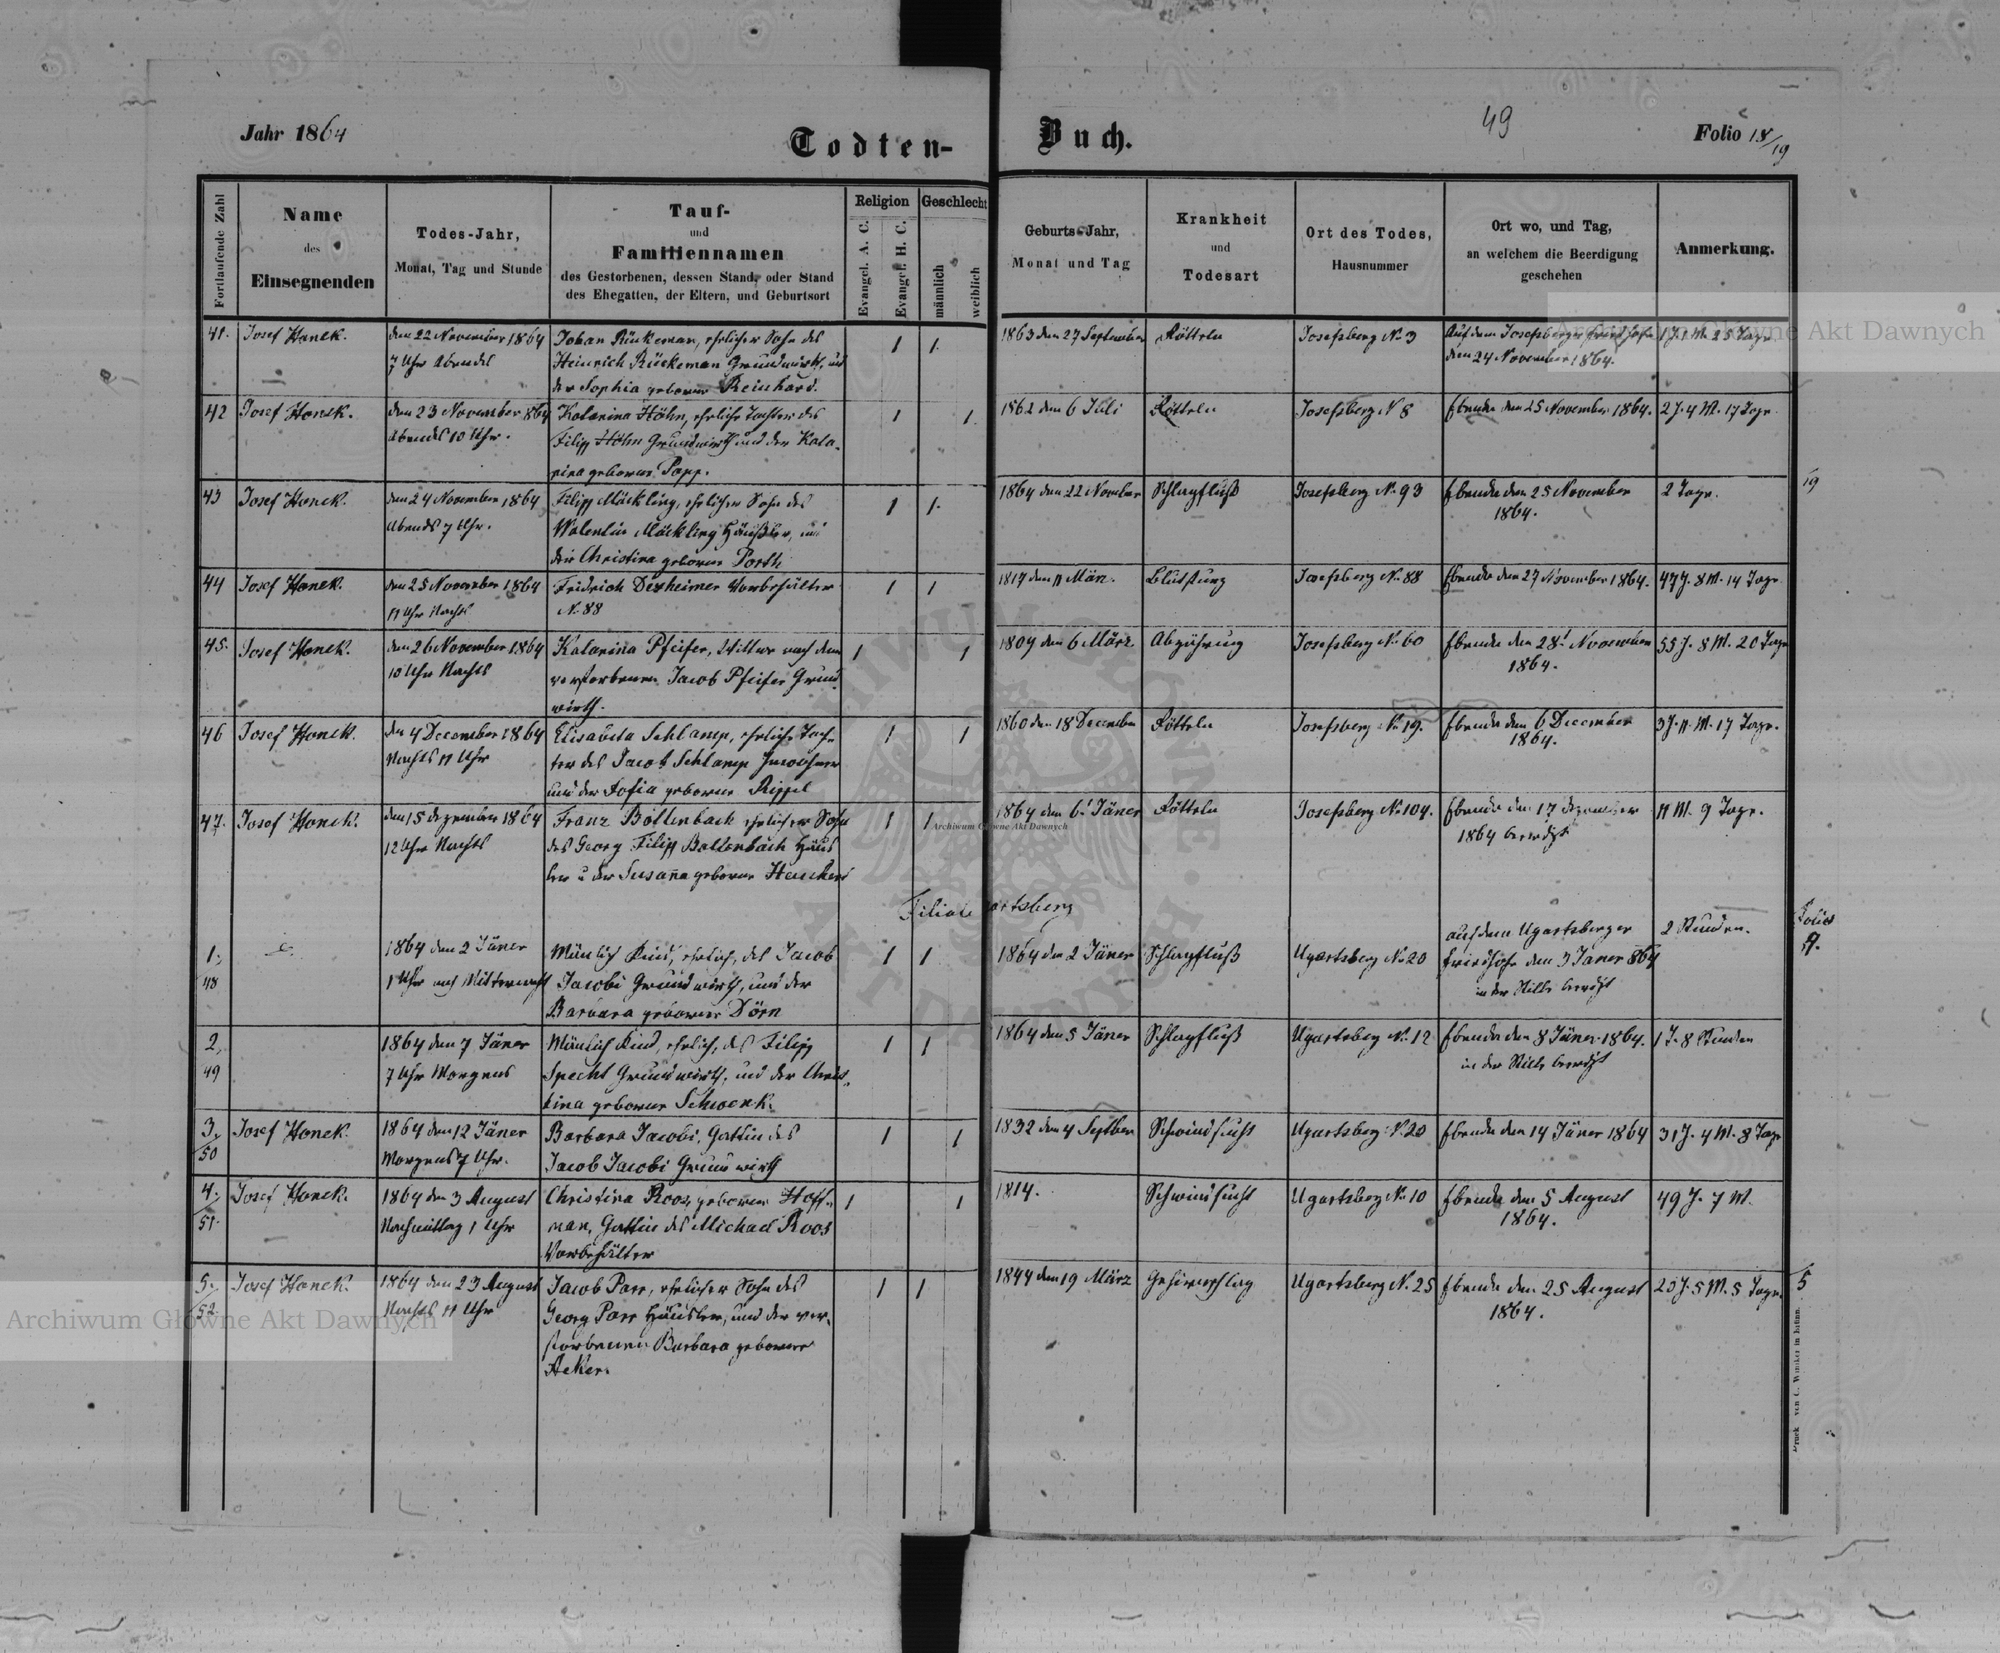 Jahr 1864
Todten-
Buch.
49
Folio 18/19
Fortlaufende Zahl
Name
des
Einsegnenden
Todes-Jahr,
Monat, Tag und Stunde
Tauf-
und
Familiennamen
des Gestorbenen, dessen Stand, oder Stand
des Ehegatten, der Eltern, und Geburtsort
Religion
Evangel. A. C.
Evangel. H. C.
Geschlecht
männlich
weiblich
Geburts-Jahr,
Monat und Tag
Krankheit
und
Todesart
Ort des Todes,
Hausnummer
Ort wo, und Tag,
an welchem die Beerdigung
geschehen
Anmerkung.
41. Josef Honek. den 22 November 1864 Johan Rückeman, ehelicher Sohn des 1 1. 1863 den 27 September Rötteln Josefsberg No 3 Auf dem Josefsberger Friedhofe 1 J. 1 M. 25 Tage
7 Uhr Abends Heinrich Rückeman Grundwirth, und den 24 November 1864.
der Sophia geborne Reinhard.
42 Josef Honek. den 23 November 864 Katarina Höhn, eheliche Tochter des 1 1. 1862 den 6 Juli Rötteln Josefsberg N 8 Ebenda den 25 November 1864. 2 J. 4 M. 17 Tage
Abends 10 Uhr. Filipp Höhn Grundwirth und der Kata-
rina geborne Popp.
43 Josef Honek. den 24 November 1864 Filipp Möckling, ehelicher Sohn des 1 1. 1864 den 22 November Schlagfluß Josefsberg No 93 Ebenda den 25 November 2 Tage. 19
Abends 7 Uhr. Walentin Möckling Häußler, und 1864.
der Christina geborne Porth
44 Josef Honek. den 25 November 1864 Fridrich Dexheimer Vorbehälter 1 1 1817 den 11 März. Josefsberg No 88 Ebenda den 27 November 1864. 47 J. 8 M. 14 Tage
11 Uhr Nachts N. 88
45. Josef Honek. den 26 November 1864 Katarina Pfeifer, Wittwe nach dem 1 1 1809 den 6 März Abzehrung Josefsberg No 60 Ebenda den 28t November 55 J. 8 M. 20 Tage
10 Uhr Nachts verstorbenen Jacob Pfeifer Grund 1864.
wirth.
46 Josef Honek. den 4 December 1864 Elisabeta Schlamp, eheliche Toch- 1 1 1860 den 18 December Rötteln Josefsberg No 19. Ebenda den 6 December 3 J. 11 M. 17 Tage.
Nachts 11 Uhr ter des Jacob Schlamp Inwohner 1864.
und der Sofia geborne Rippel
47. Josef Honek. den 15 Dezember 1864 Franz Bollenbach ehelicher Sohn 1 1 1864 den 6t Jäner Rötteln Josefsberg No 104. Ebenda den 17 Dezember 11 M. 9 Tage.
12 Uhr Nachts des Georg Filipp Bollenbach Häus 1864 beerdigt
ler u der Susanna geborne
Filiale Ugartsberg
Folio
9.
1. 1864 den 2 Jäner Mänlich Kind, ehelich, des Jacob 1 1 1864 den 2 Jäner Schlagfluß Ugartsberg No 20 auf dem Ugartsberger 2 Stunden.
48 1 Uhr nach Mitternacht Jacobi Grundwirth, und der Friedhofe den 3 Janer 864
Barbara geborne Dörn in der Stille beerdigt
2. 1864 den 7 Jäner Mänlich Kind, ehelich, des Filipp 1 1 1864 den 5 Jäner Schlagfluß Ugartsberg No 12 Ebenda den 8 Jäner 1864. 1 T. 8 Stunden
49 7 Uhr Morgens Specht Grundwirth, und der Chris- in der Stille beerdigt
tina geborne Schwenk.
3. Josef Honek. 1864 den 12 Jäner Barbara Jacobi, Gattin des 1 1 1832 den 4 September Schwindsucht Ugartsberg No 20 Ebenda den 14 Jäner 1864 31 J. 4 M. 8 Tage
50 Morgens 7 Uhr. Jacob Jacobi Grundwirth
4. Josef Honek. 1864 den 3 August Christina Roos, geborne Hoff- 1 1 1814. Schwindsucht Ugartsberg No 10 Ebenda den 5 August 49 J. 7 M.
51. Nachmittag 1 Uhr man, Gattin des Michael Roos 1864.
Vorbehälter
5. Josef Honek. 1864 den 23 August Jacob Parr, ehelicher Sohn des 1 1 1844 den 19 März Gehirnschlag Ugartsberg N. 25 Ebenda den 25 August 20 J. 5 M. 5 Tage. 5
52. Nachts 11 Uhr Georg Parr Häusler, und der ver- 1864.
storbenen Barbara geborne
Acker.
Archiwum Główne Akt Dawnych
Archiwum Główne Akt Dawnych
Archiwum Główne Akt Dawnych